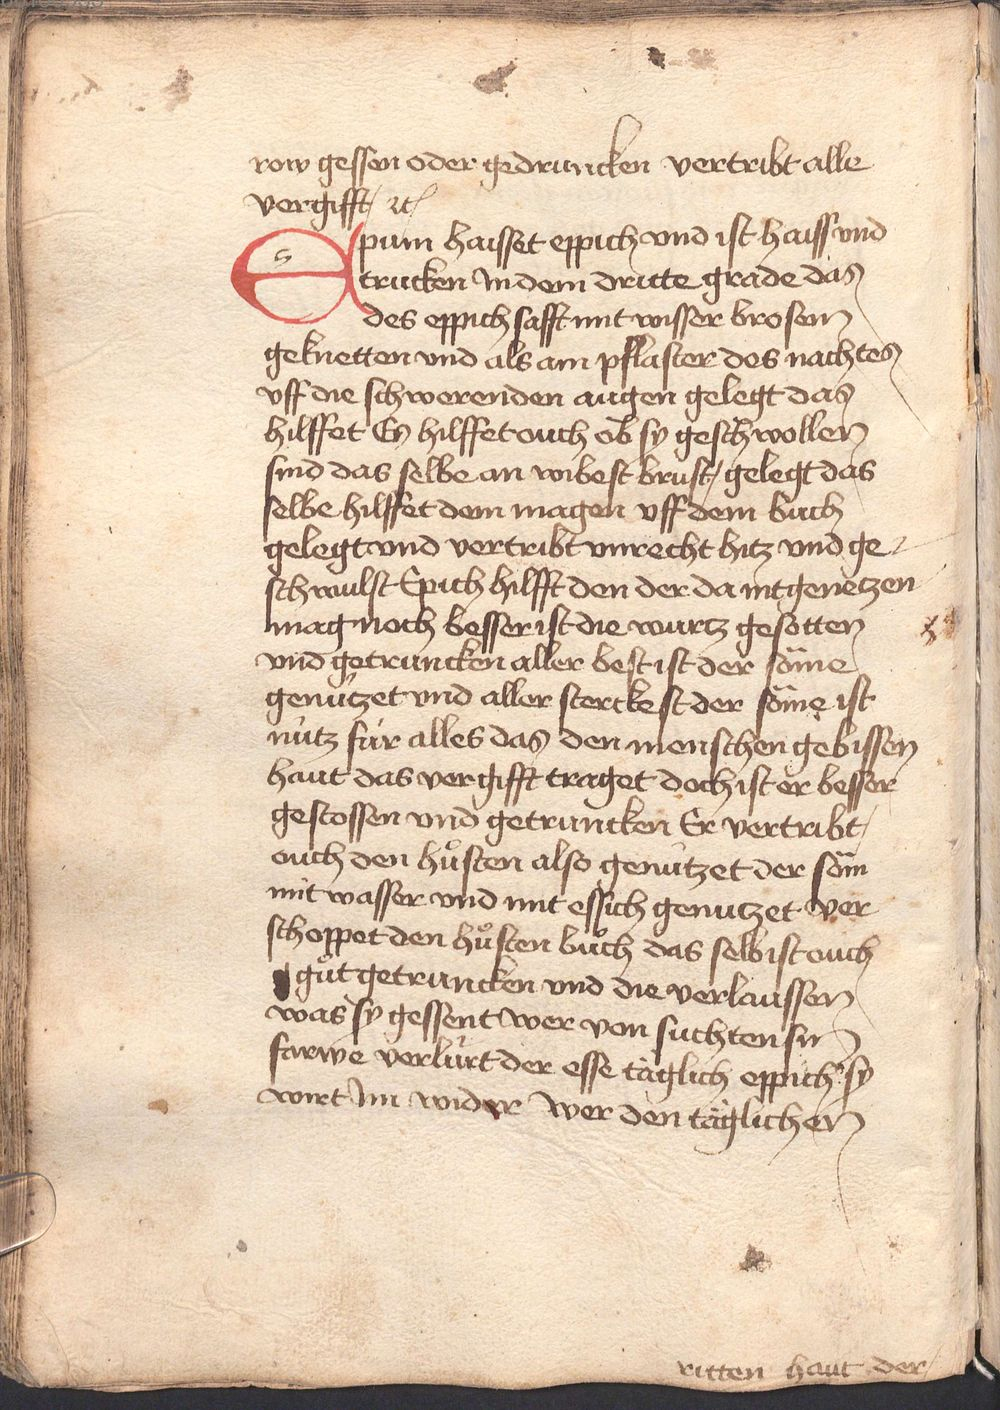 row gessen oder gedruncken vertribt alle
vergifft / ⁊c
Epium haisset eppich vnd ist haiss vnd
trucken In dem dritte grade das
des eppich safft mit wisser brosem
geknetten vnd als ain pflaster des nachtes
vff die schwerenden augen gelegt das
hilffet Es hilffet ouch ob sy geschwollen
sind das selbe an wibest brust / gelegt das
selbe hilffet dem magen vff dem buch
gelegt vnd vertribt vnrecht hitz vnd ge
schwulst Epich hilfft den der da nit genetzen
mag noch besser ist die wurtz gesotten
vnd getruncken aller best ist der some
genützet vnd aller sterckest der some ist
nütz für alles das den menschen gebissen
haut das vergifft traget doch ist er besser
gestossen vnd getruncken Er vertribt
ouch den hůsten also genützet der som
mit wasser vnd mit essich genutzet ver
schoppet den hůsten bůch das selb ist ouch
gůt getruncken vnd die verlaussen
was sy gessent wer von suchten sin
farwe verlürt der esse täglich eppich sy
wirt Im wider wer den täglichen
ritten haut der